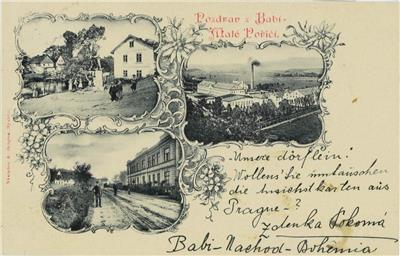 Pozdrav z Babí-
Malé Poříčí.
Unsere dörflein!
Wollens Sie umtauschen
die Ansichtskarten aus
Prague-?
Zdenka
Babi-Nachod-Bohemia